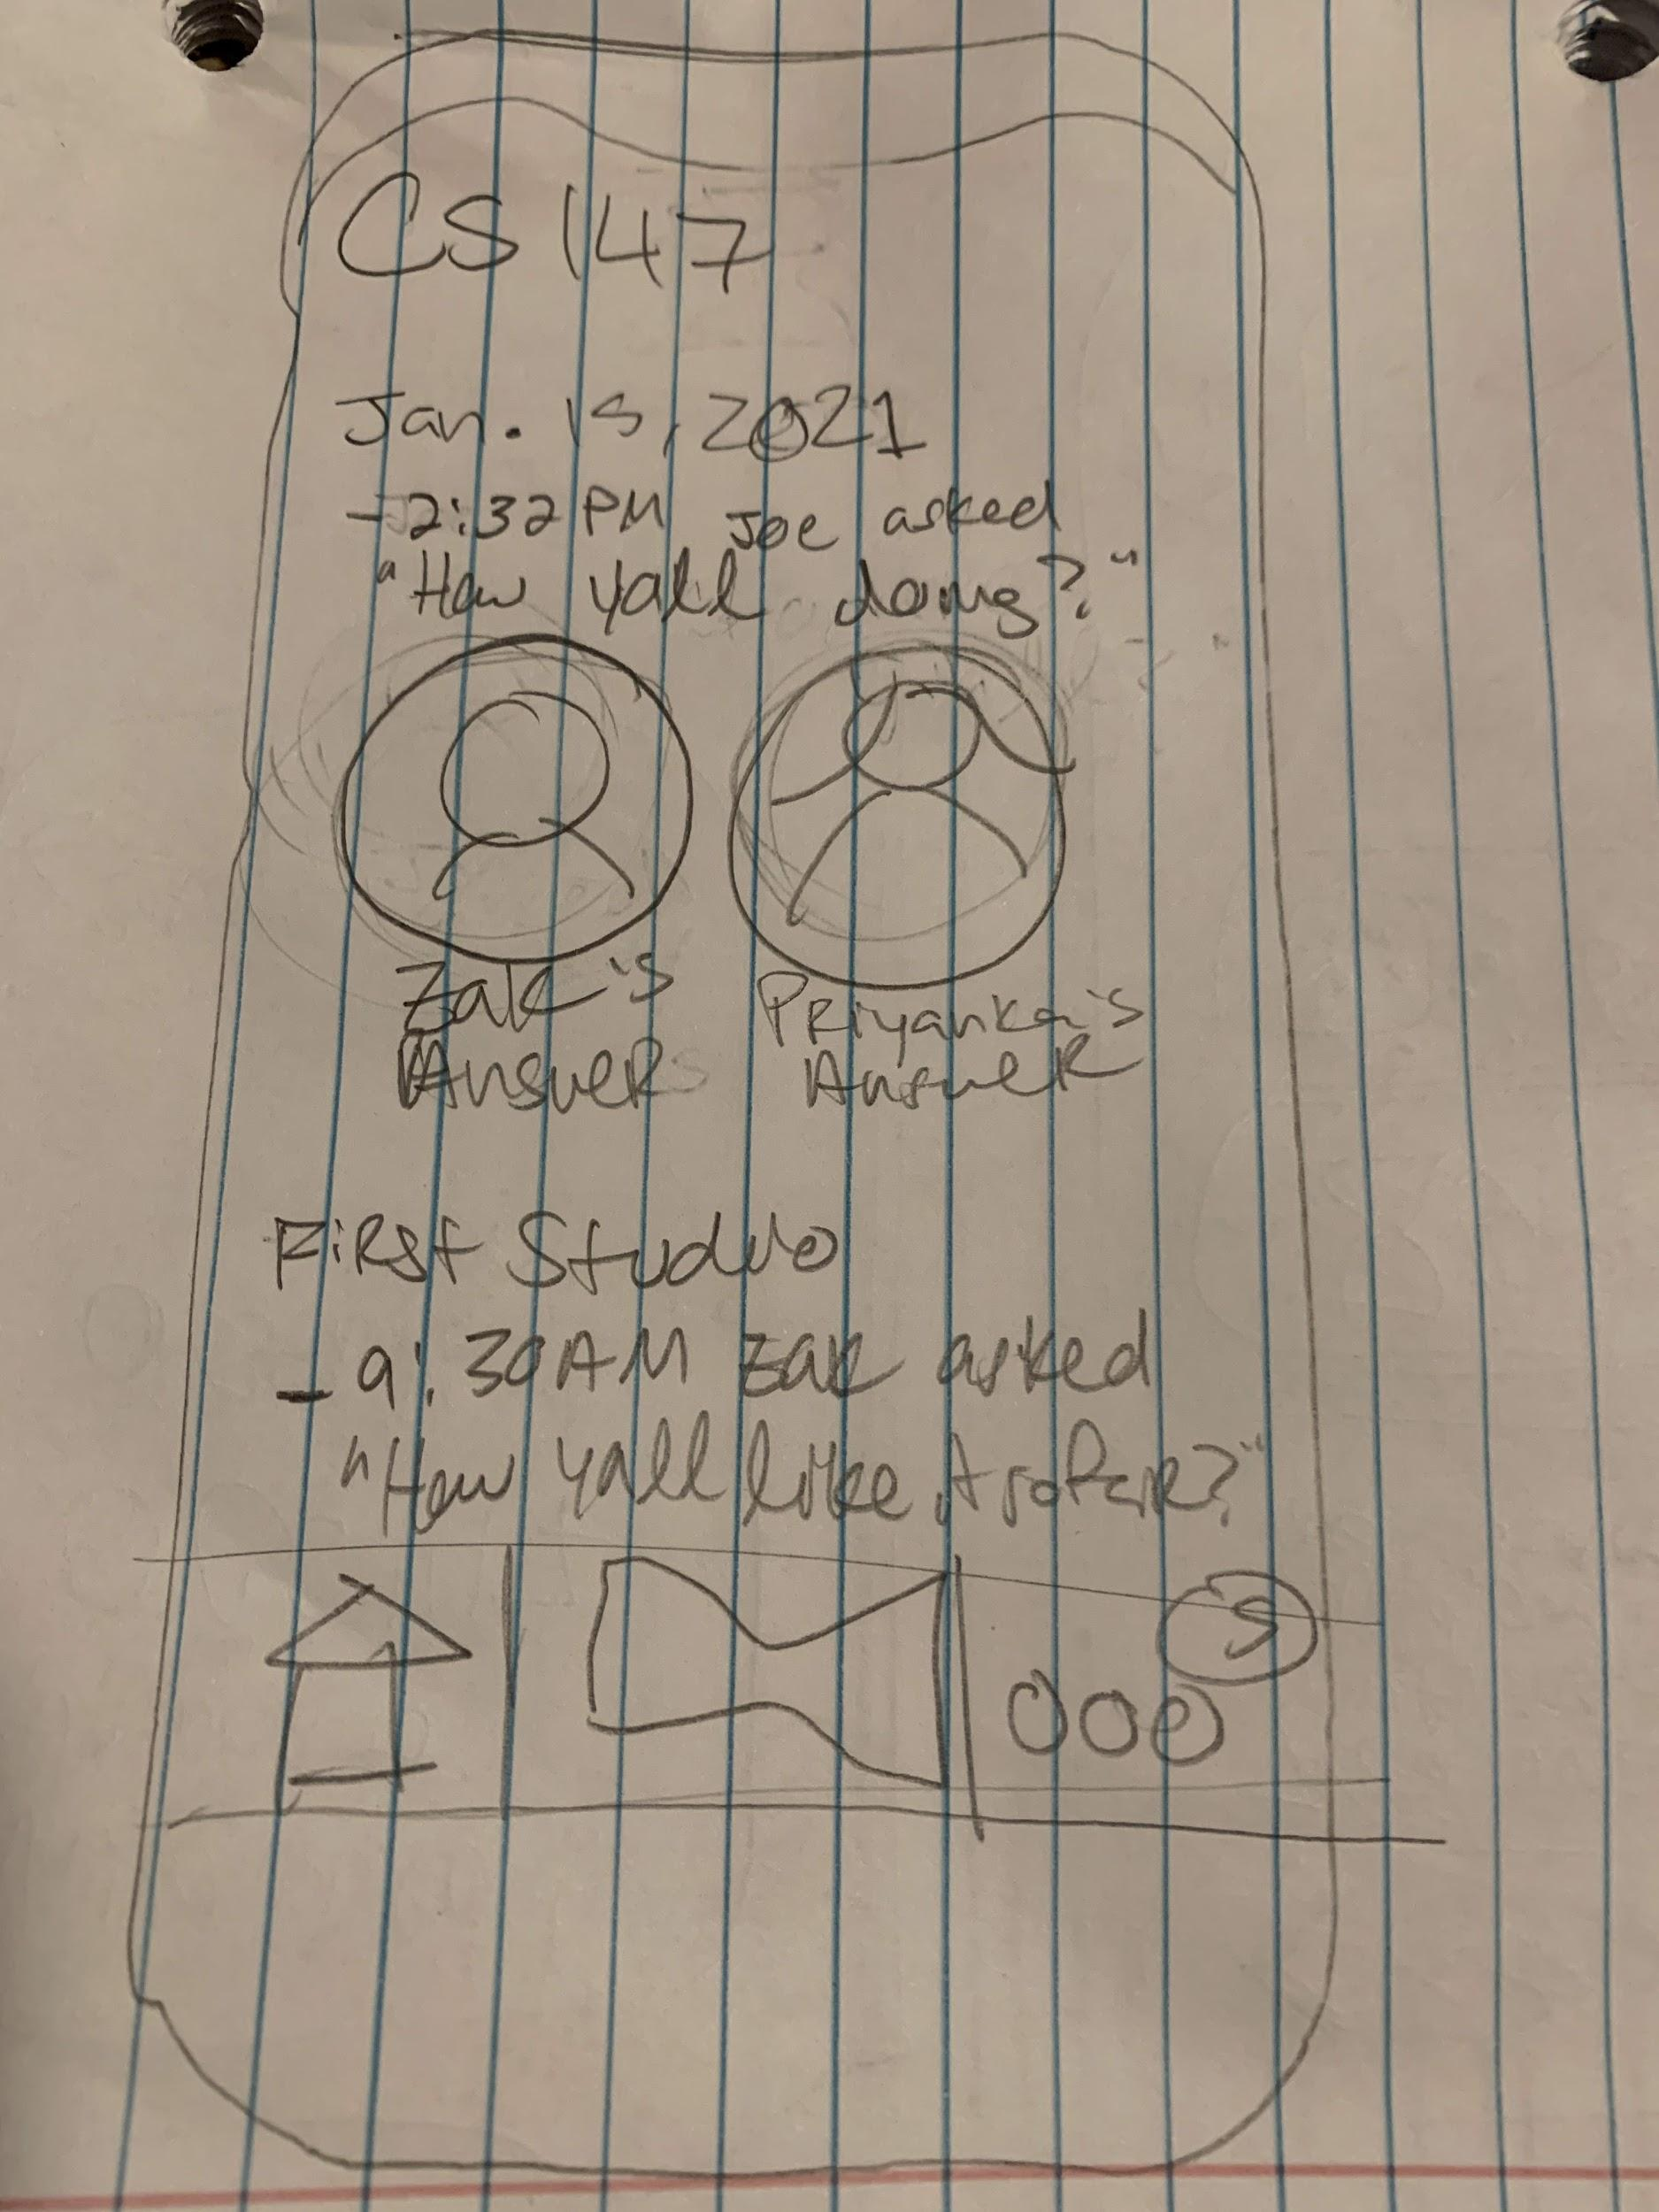 CS 147
Jan. 15, 2021
- 2:32 PM Joe asked
"How yall doing?"
Zak's Priyanka's
Answer Answer
First Studio
- 9:30AM Zak asked
"How yall like it so far?"
5